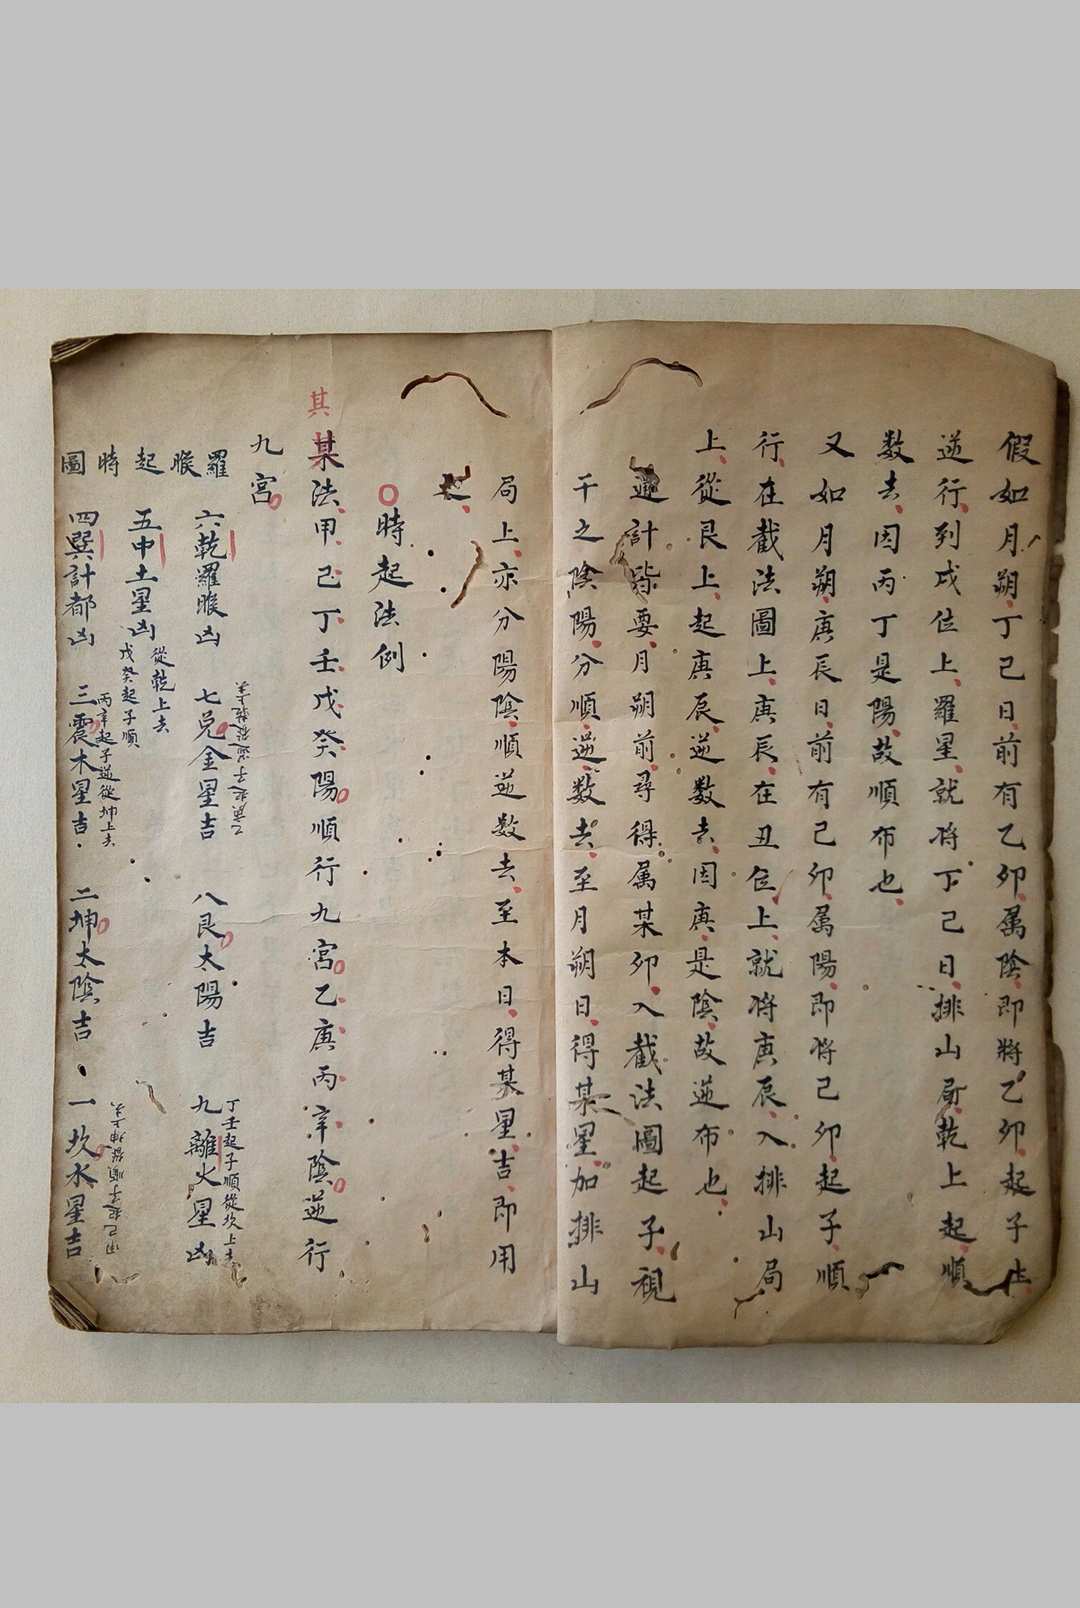 假如月朔丁己日前有乙卯属陰即將乙卯起子
逆行到戍位上羅星就将丁己日排山局乾上起順
数去因丙丁是陽故順布也
又如月朔庚辰日前有己卯属陽即将己卯起子順
行在截法圖上庚辰在丑位上就将庚辰入排山局
上從艮上起庚辰逆数去因庚是陰故逆布也
計皆要月朔前尋得属某卯入截法圖起子視
干之陰陽分順逆数去至月朔日得某星加排山
局上亦分陽陰順逆数去至本日得某星吉即用
〇時起法例
其
某法甲己丁壬戊癸陽順行九宮乙庚丙辛陰逆行
九宮
羅睺起時圖
六乾羅睺凶
七兌金星吉
乙庚起子逆從乾上去
八艮太陽吉
九離火星凶
丁壬起子順從坎上去
五中土星凶
從乾上去
戊癸起子順
四巽計都凶
三震木星吉
丙辛起子逆從坤上去
二坤太陰吉
一坎水星吉
甲己起子順從坤上去